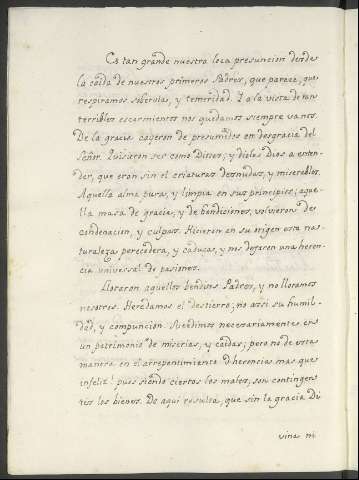 Es tan grande nuestra loca presuncion desde
la caida de nuestros primeros Padres, que parece, que
respiramos soberbias, y temeridad. Y a la vista de tan
terribles escarmientos nos quedamos siempre vanos.
De la gracia cayeron de presumidos en desgracia del
Señor. Quisieron ser como Dioses; y dioles Dios a enten-
der, que eran sin el criaturas desnudas, y miserables.
Aquella alma pura, y limpia en sus principios; aque-
lla masa de gracia, y de bendiciones, volvieron de
condenacion, y culpas. Hicieron en su origen esta nat-
turaleza perecedera, y caduca, y nos dejaron una heren-
cia universal de pasiones.
Lloraron aquellos benditos Padres, y no lloramos
nosotros. Heredamos el destierro; no assi su humil-
dad, y compuncion. Sucedimos necesariamentes en
un patrimonio de miserias, y caidas; pero no de esta
manera en el arrepentimiento. O herencias mas que
infeliz! pues siendo ciertos los males, son contingen-
tes los bienes. De aqui resulta, que sin la gracia Di
vina ni